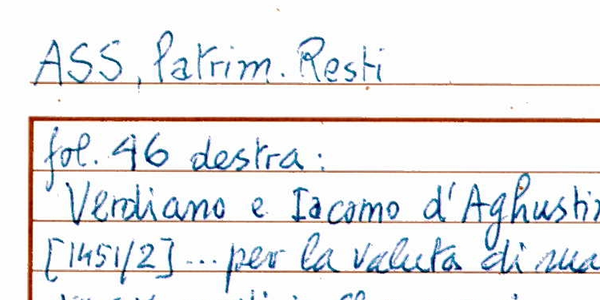 ASS, Patrim. Resti
fol. 46 destra:
Verdiano e Iacomo d'Aghustin
[1451/2] ... per la valuta di